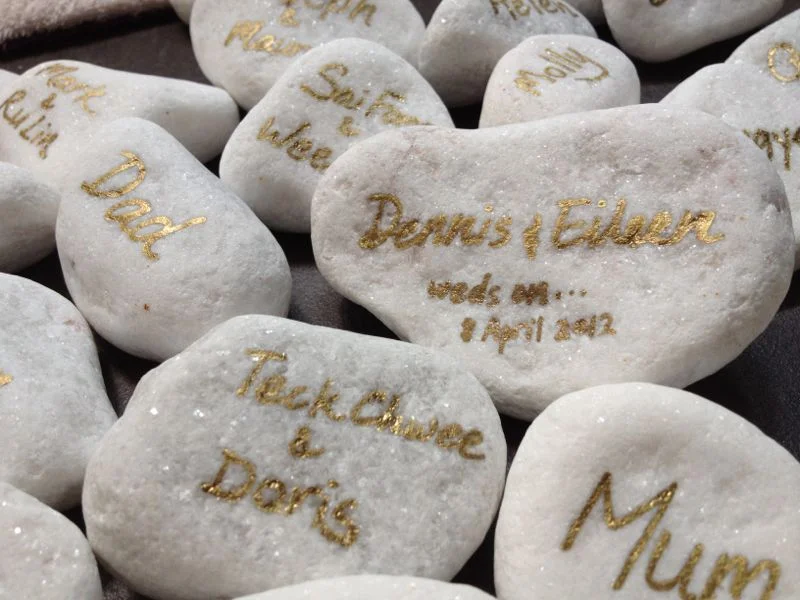 Helen
Molly
Mark
&
Rulin
Sai Fong
&
Wee
Dad
Dennis & Eileen
weds on...
8 April 2012
Teck Chwee
&
Doris
Mum